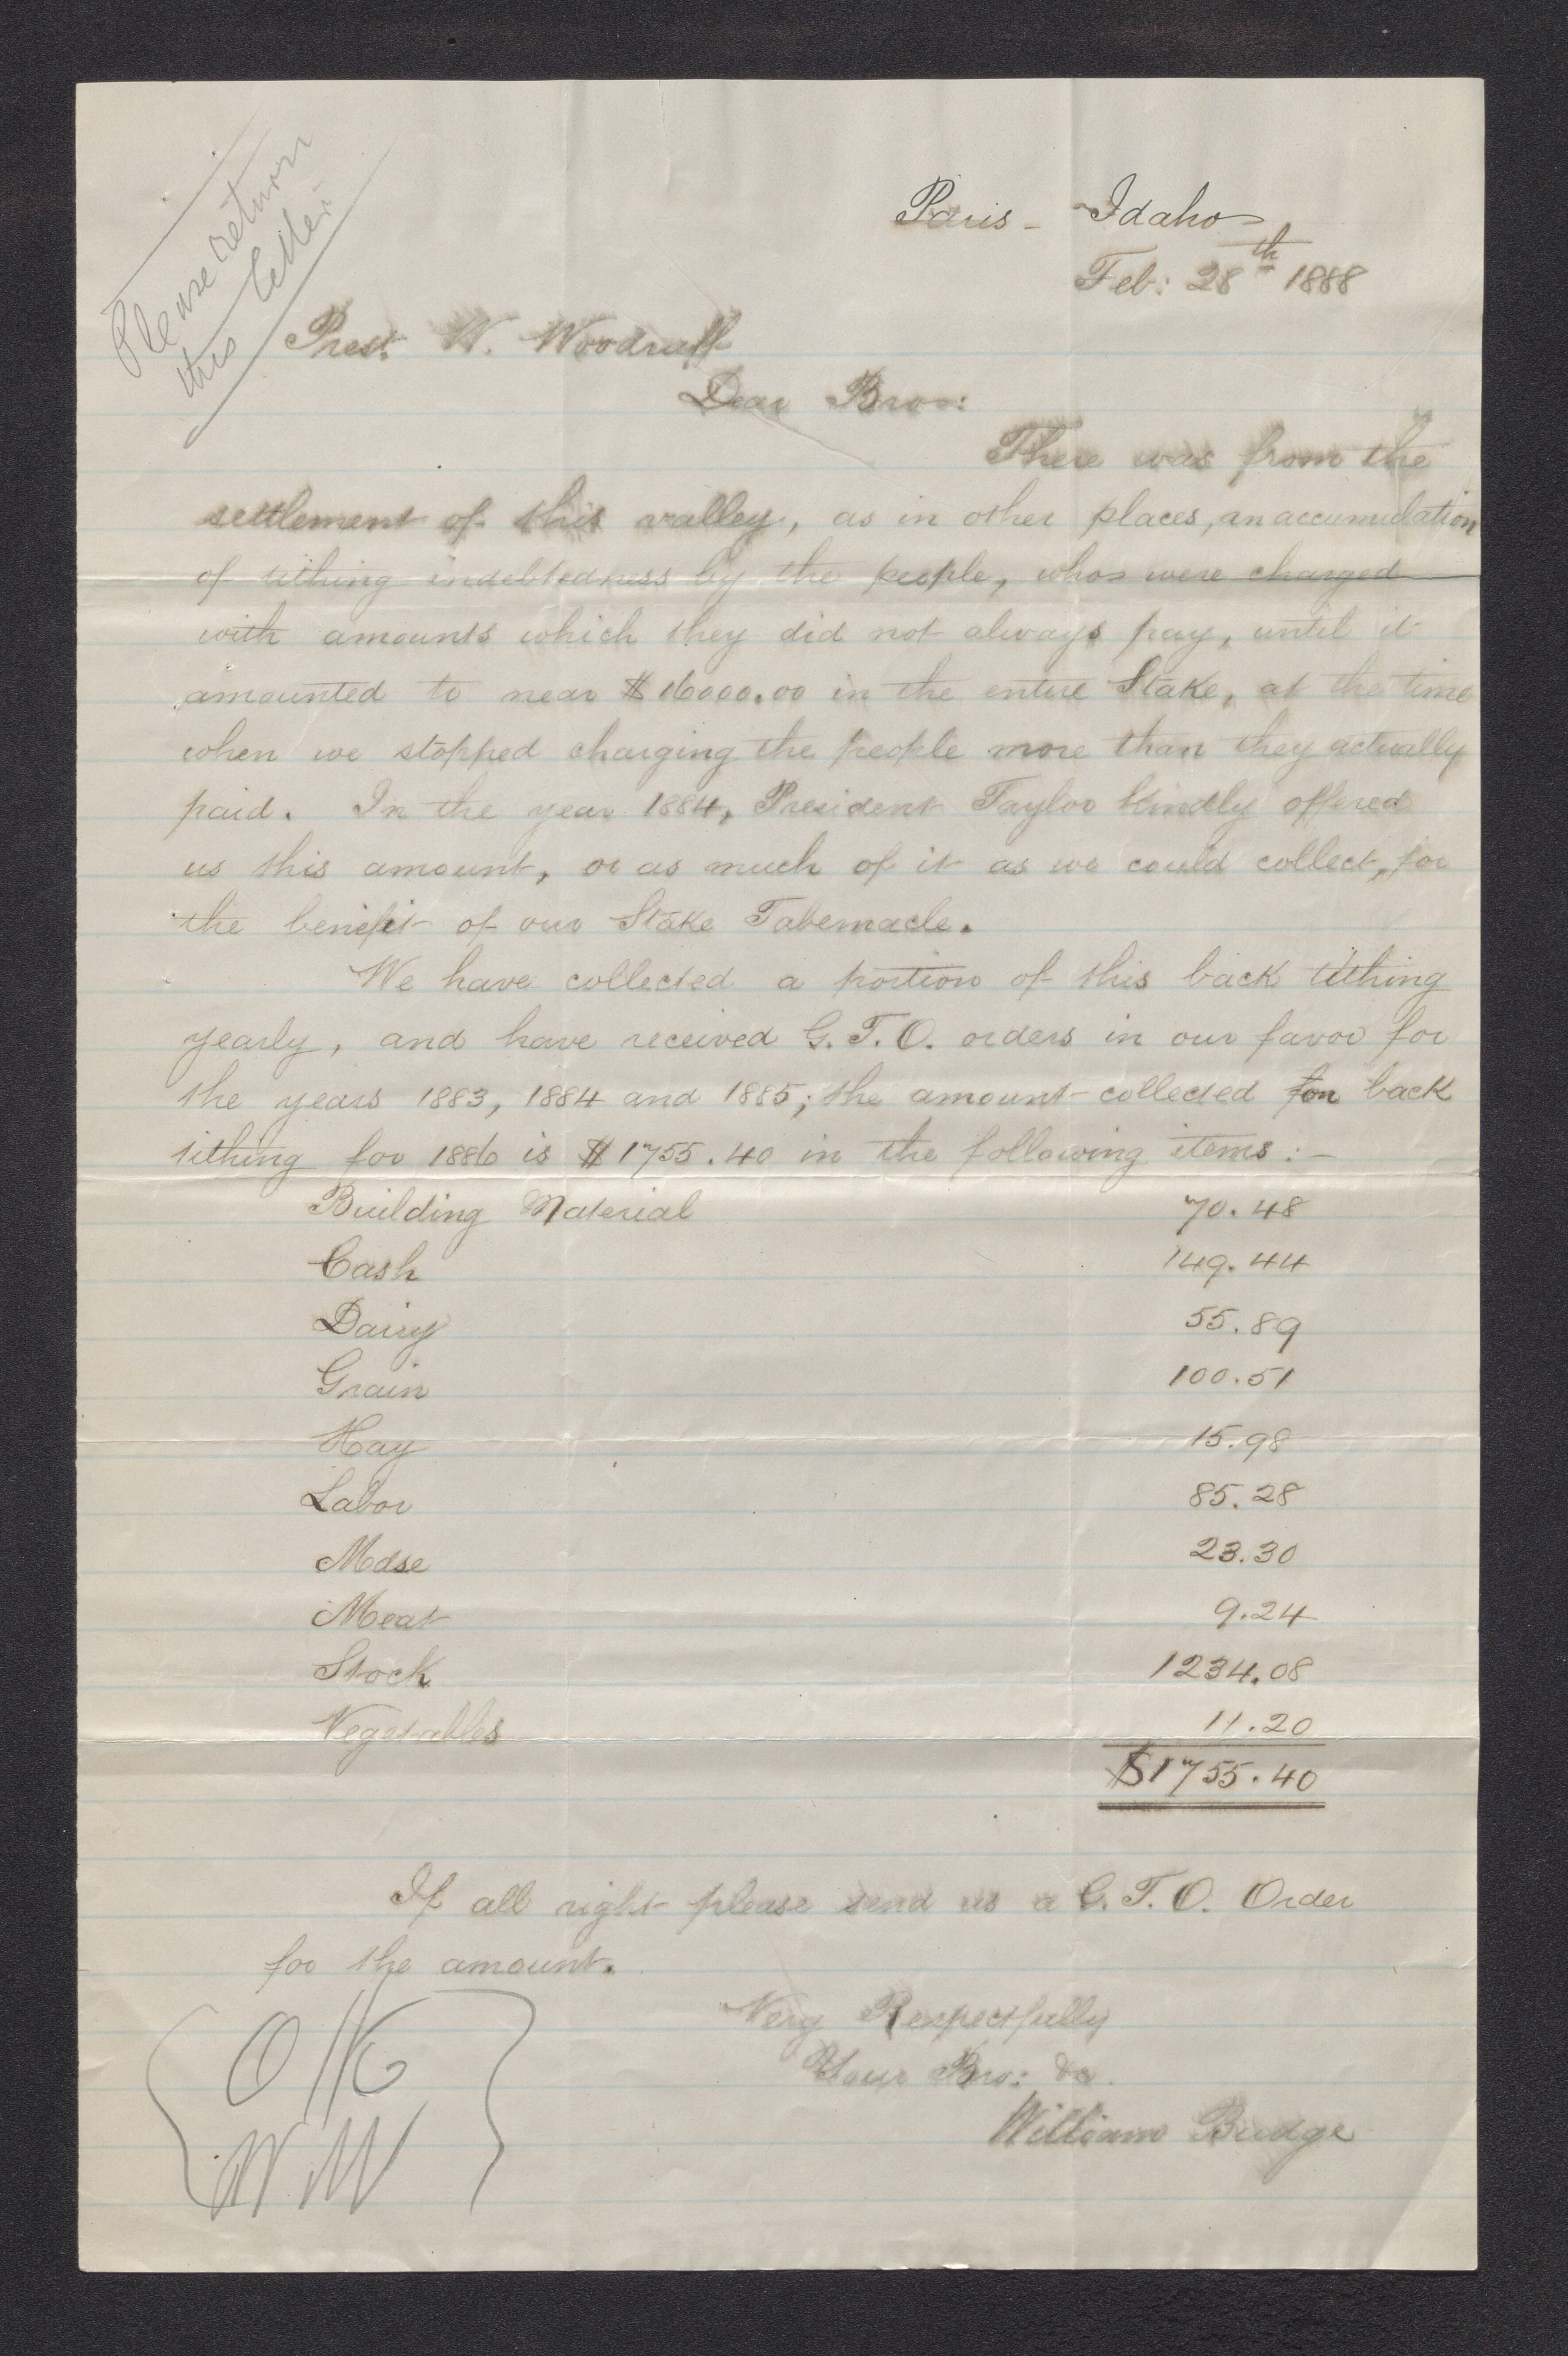 Please return
this letter.
Paris - Idaho
Feb: 28th 1888
Prest. W. Woodruff
Dear Bro:
There was from the
settlement of this valley, as in other places, an accumulation
of tithing indebtedness by the people, who were charged
with amounts which they did not always pay, until it
amounted to near $16000.00 in the entire Stake, at the time
when we stopped charging the people more than they actually
paid. In the year 1884, President Taylor kindly offered
us this amount, or as much of it as we could collect, for
the benefit of our Stake Tabernacle.
We have collected a portion of this back tithing
yearly, and have received G. T. O. orders in our favor for
the years 1883, 1884 and 1885; the amount collected on back
tithing for 1886 is $1755.40 in the following items: -
Building Material 70.48
Cash 149.44
Dairy 55.89
Grain 100.51
Hay 15.98
Labor 85.28
Mdse 23.30
Meat 9.24
Stock 1234.08
Vegetables 11.20
$1755.40
If all right please send us a G. T. O. Order
for the amount.
Very Respectfully
Your Bro: &c.
William Budge
OK
W. W